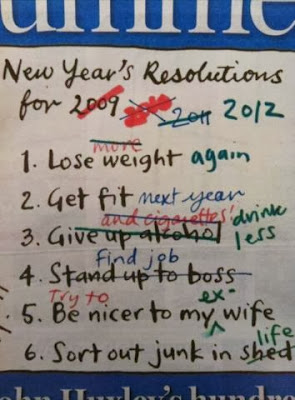 New Year's Resolutions
for 2009 2011 2012
more
1. Lose weight again
2. Get fit next year
and cigarettes' drink
3. Give up alcohol less
find job
4. Stand up to boss
Try to ex-
5. Be nicer to my wife
life
6. Sort out junk in shed
Huxley's